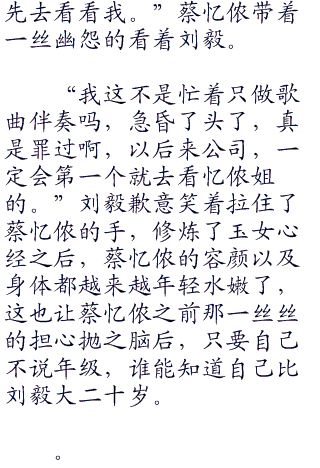 先去看看我。”蔡忆侬带着
一丝幽怨的看着刘毅。
“我这不是忙着只做歌
曲伴奏吗，急昏了头了，真
是罪过啊，以后来公司，一
定会第一个就去看忆侬姐
的。”刘毅歉意笑着拉住了
蔡忆侬的手，修炼了玉女心
经之后，蔡忆侬的容颜以及
身体都越来越年轻水嫩了，
这也让蔡忆侬之前那一丝丝
的担心抛之脑后，只要自己
不说年级，谁能知道自己比
刘毅大二十岁。
。